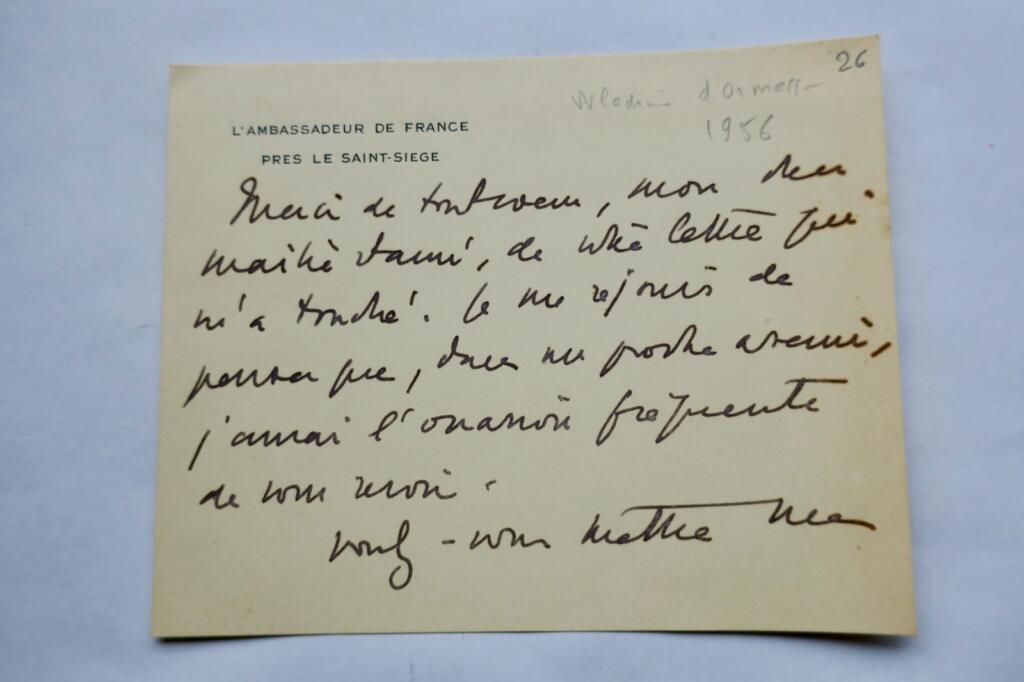 26
Wladimir d'Ormesson
1956
L'AMBASSADEUR DE FRANCE
PRES LE SAINT-SIEGE
Merci de tout cœur, mon cher
maître et ami, de votre lettre qui
m'a touché. Je me réjouis de
penser que, dans un proche avenir,
j'aurai l'occasion fréquente
de vous revoir.
Voulez-vous mettre mes